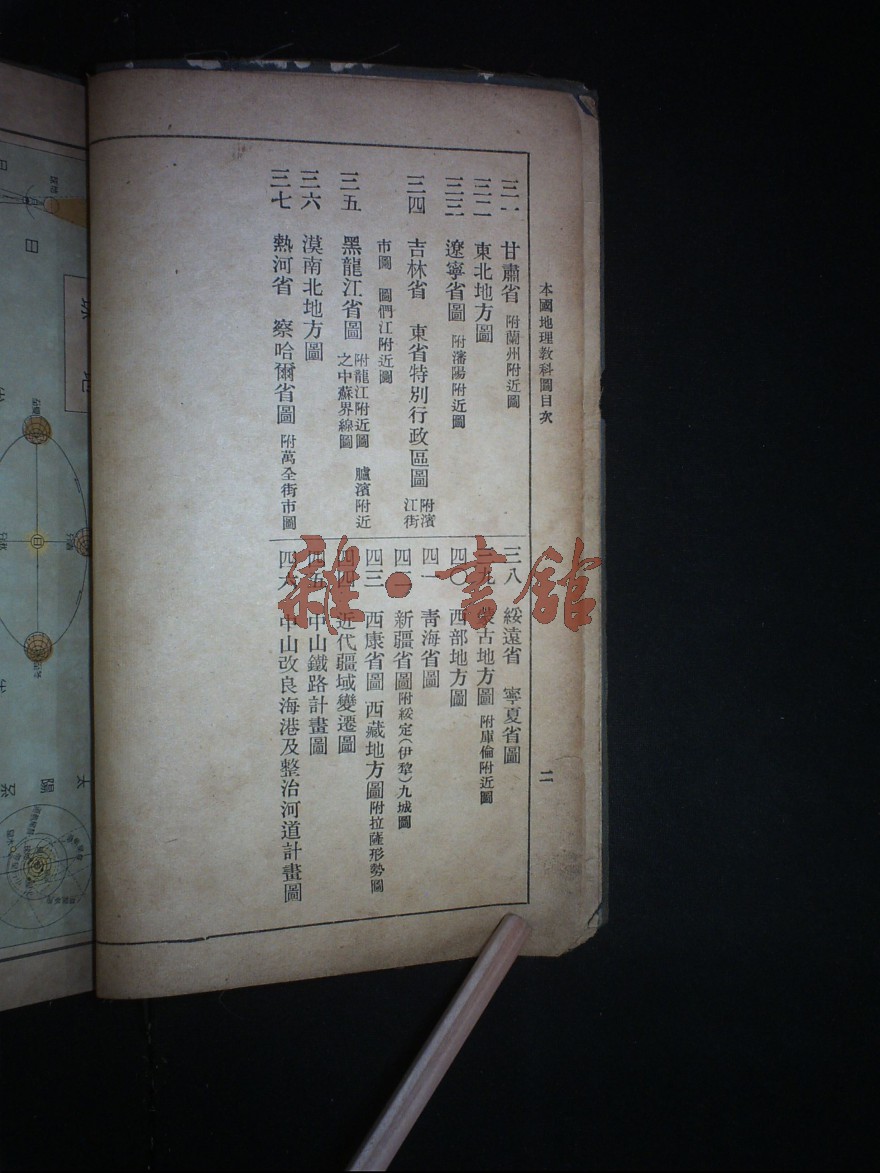 本國地理教科圖目次
二
三一 甘肅省 附蘭州附近圖
三二 東北地方圖
三三 遼寧省圖 附瀋陽附近圖
三四 吉林省 東省特別行政區圖 附濱江街
市圖 圖們江附近圖
三五 黑龍江省圖 附龍江附近圖 臚濱附近
之中蘇界線圖
三六 漠南北地方圖
三七 熱河省 察哈爾省圖 附萬全街市圖
三八 綏遠省 寧夏省圖
三九 蒙古地方圖 附庫倫附近圖
四〇 西部地方圖
四一 青海省圖
四二 新疆省圖 附綏定(伊犂)九城圖
四三 西康省圖 西藏地方圖 附拉薩形勢圖
四四 近代疆域變遷圖
四五 中山鐵路計畫圖
四六 中山改良海港及整治河道計畫圖
雜·書館
日
太
陽
系